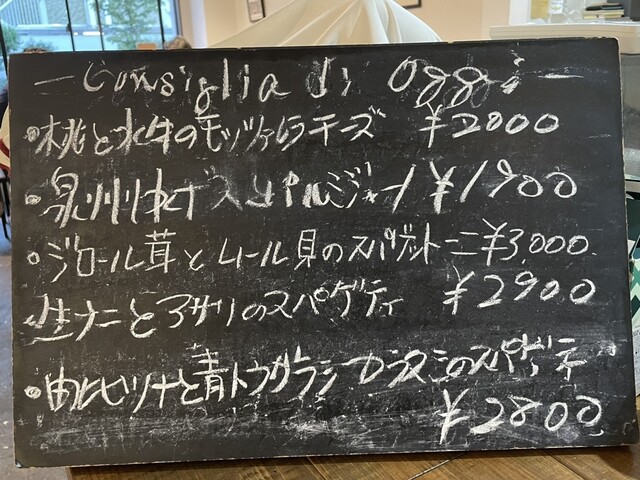 Consiglia di Oggi
・桃と水牛のモッツァレラチーズ ¥2800
・泉州水ナス パルミジャーノ ¥1900
・ジロール茸とムール貝のスパゲットーニ ¥3,000
生ウニとアサリのスパゲティ ¥2900
と青トウガラシ カラスミのスパゲティ
¥2800